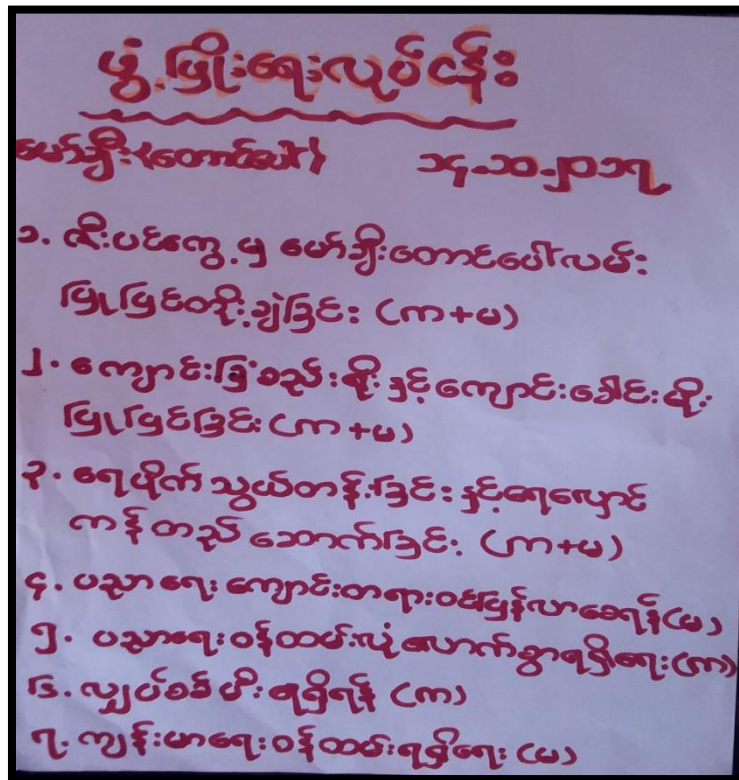 ဖွံ့ဖြိုးရေးလုပ်ငန်း
မော်ချီး(တောင်ပေါ်) ၁၄-၁၀-၂၀၁၇
၁. ဇီးပင်ကွေ့မှ မော်ချီးတောင်ပေါ်လမ်း
ပြုပြင်တိုးချဲ့ခြင်း (က+မ)
၂. ကျောင်းခြံစည်းရိုး နှင့် ကျောင်းခေါင်မိုး
ပြုပြင်ခြင်း (က+မ)
၃. ရေပိုက် သွယ်တန်းခြင်း နှင့် ရေလှောင်
ကန် တည် ဆောက်ခြင်း (က+မ)
၄. ပညာရေး ကျောင်းတရားဝင်ဖြစ်လာစေရန် (မ)
၅. ပညာရေး ဝန်ထမ်းလုံလောက်စွာရရှိရေး (က)
၆. လျှပ်စစ် မီး ရရှိရန် (က)
၇. ကျန်းမာရေး ဝန်ထမ်းရရှိရေး (မ)